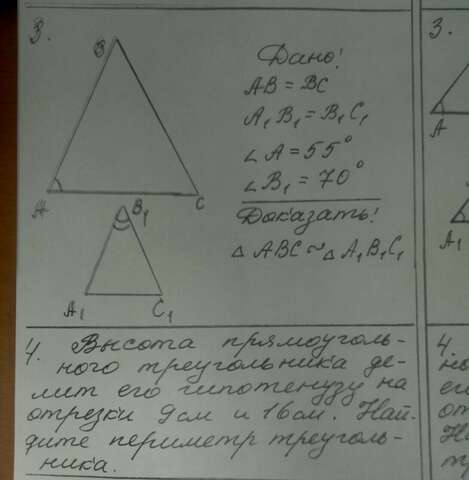 3.
B
A
C
Дано!
AB = BC
A₁B₁ = B₁C₁
∠A = 55°
∠B₁ = 70°
Доказать!
△ABC ~ △A₁B₁C₁
B₁
A₁
C₁
4. Высота прямоуголь-
ного треугольника де-
лит его гипотенузу на
отрезки 9см и 16см. Най-
дите периметр треуголь-
ника.
3.
A
A₁
4.
но
его
от
На
тр